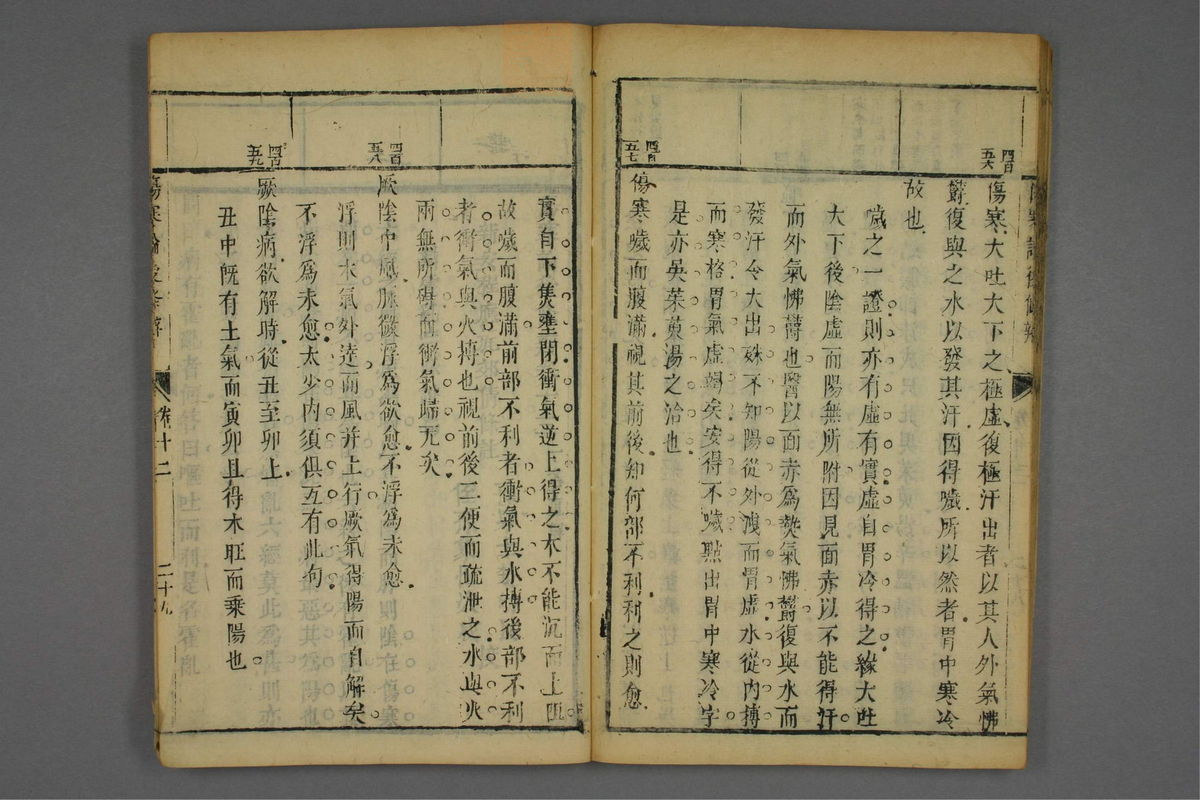 四百五六
傷寒大吐大下之極虛復極汗出者以其人外氣怫
鬱復與之水以發其汗因得噦所以然者胃中寒冷
故也
噦之一證則亦有虛有實虛自胃冷得之緣大吐
大下後陰虛而陽無所附因見面赤以不能得汗
而外氣怫鬱也醫以面赤為熱氣怫鬱復與水而
發汗令大出殊不知陽從外洩而胃虛水從內搏
而寒格胃氣虛竭矣安得不噦點出胃中寒冷字
是亦吳茱萸湯之治也
四百五七
傷寒噦而腹滿視其前後知何部不利利之則愈
實自下焦壅閉衝氣逆上得之木不能沉而上
故噦而腹滿前部不利者衝氣與水搏後部不利
者衝氣與火搏也視前後二便而疏泄之水與火
兩無所碍而衝氣歸元矣
四百五八
厥陰中風脉微浮為欲愈不浮為未愈
浮則木氣外達而風并上行厥氣得陽而自解矣
不浮為未愈太少內須俱互有此句
四百五九
厥陰病欲解時從丑至卯上
丑中旣有土氣而寅卯且得木旺而乘陽也
卷十二
二十九